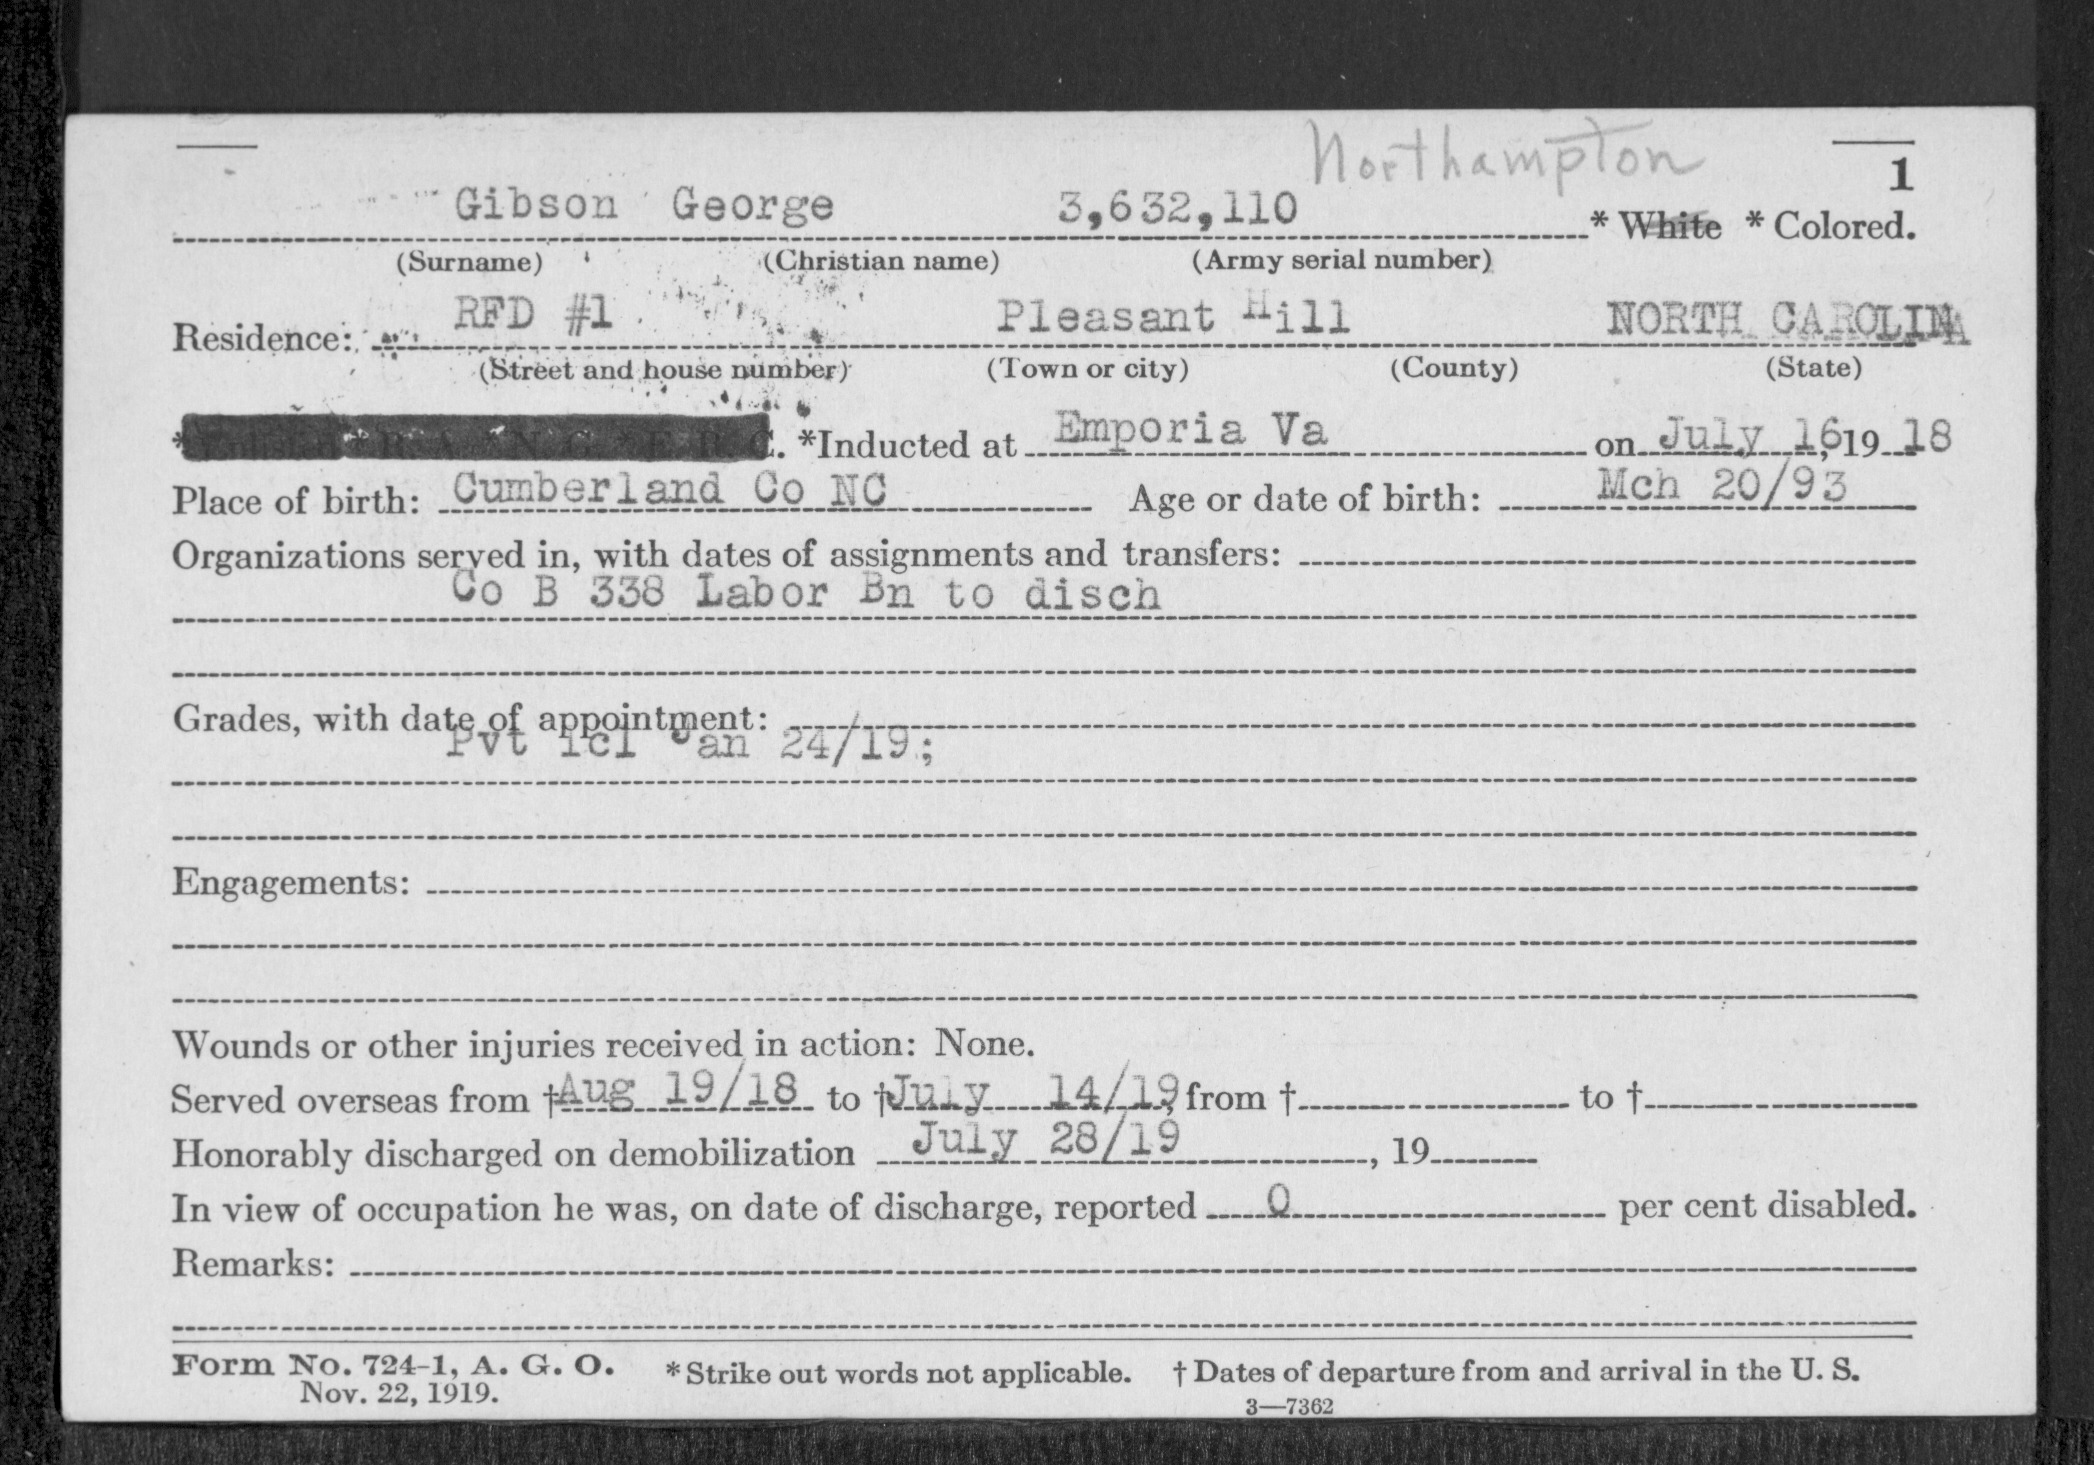 Northampton
1
Gibson George 3,632,110 * White * Colored.
(Surname) (Christian name) (Army serial number)
Residence: RFD #1 Pleasant Hill NORTH CAROLINA
(Street and house number) (Town or city) (County) (State)
* Enlisted * R. A. N. G. E. R. C. *Inducted at Emporia Va on July 16, 19 18
Place of birth: Cumberland Co NC Age or date of birth: Mch 20/93
Organizations served in, with dates of assignments and transfers:
Co B 338 Labor Bn to disch
Grades, with date of appointment:
Pvt 1cl Jan 24/19;
Engagements:
Wounds or other injuries received in action: None.
Served overseas from † Aug 19/18 to † July 14/19, from † to †
Honorably discharged on demobilization July 28/19, 19
In view of occupation he was, on date of discharge, reported 0 per cent disabled.
Remarks:
Form No. 724-1, A. G. O. * Strike out words not applicable. † Dates of departure from and arrival in the U. S.
Nov. 22, 1919.
3—7362